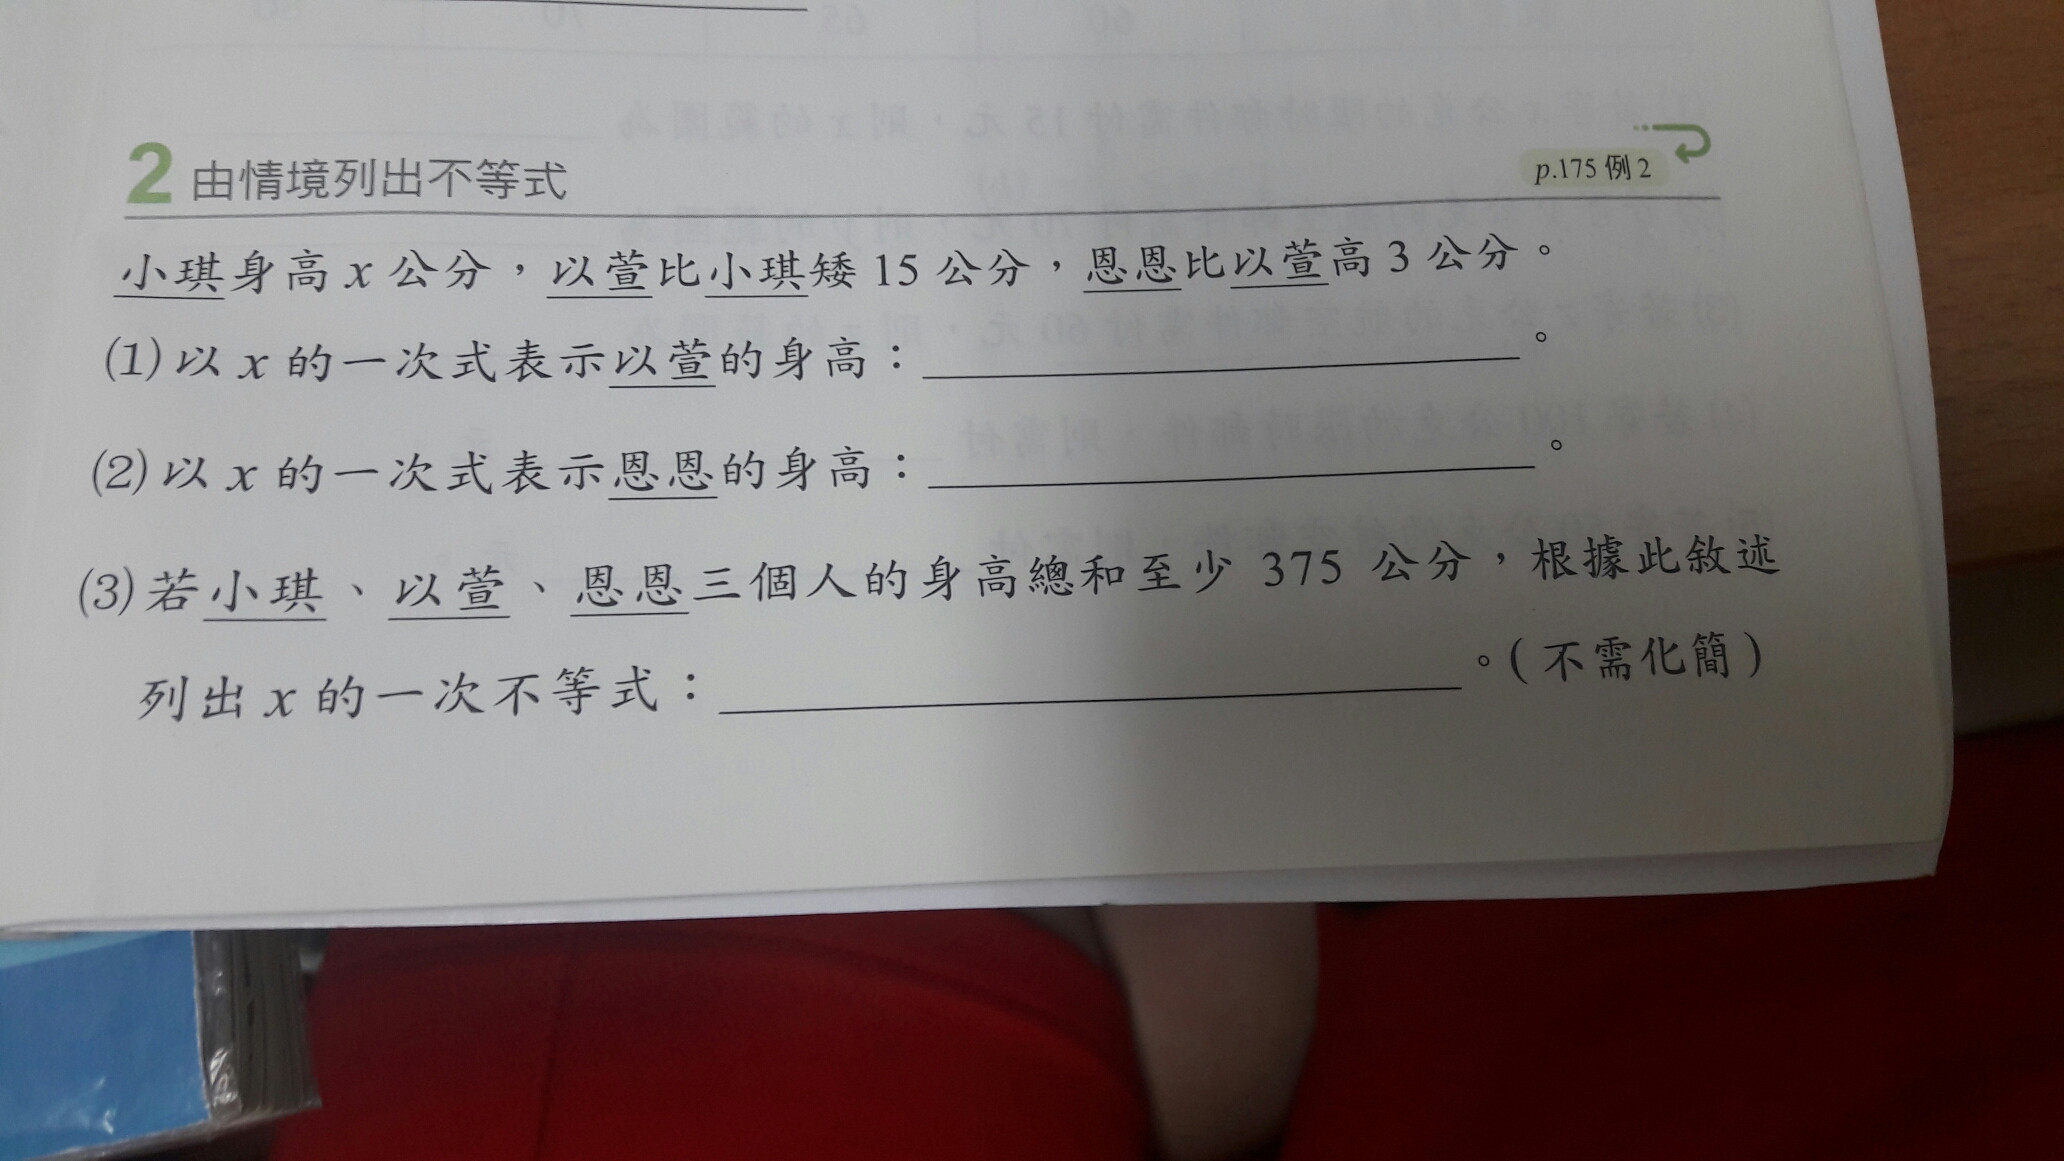 2 由情境列出不等式
p.175 例2
小琪身高 x 公分，以萱比小琪矮 15 公分，恩恩比以萱高 3 公分。
(1) 以 x 的一次式表示以萱的身高：。
(2) 以 x 的一次式表示恩恩的身高：。
(3) 若小琪、以萱、恩恩三個人的身高總和至少 375 公分，根據此敘述
列出 x 的一次不等式：。(不需化簡)